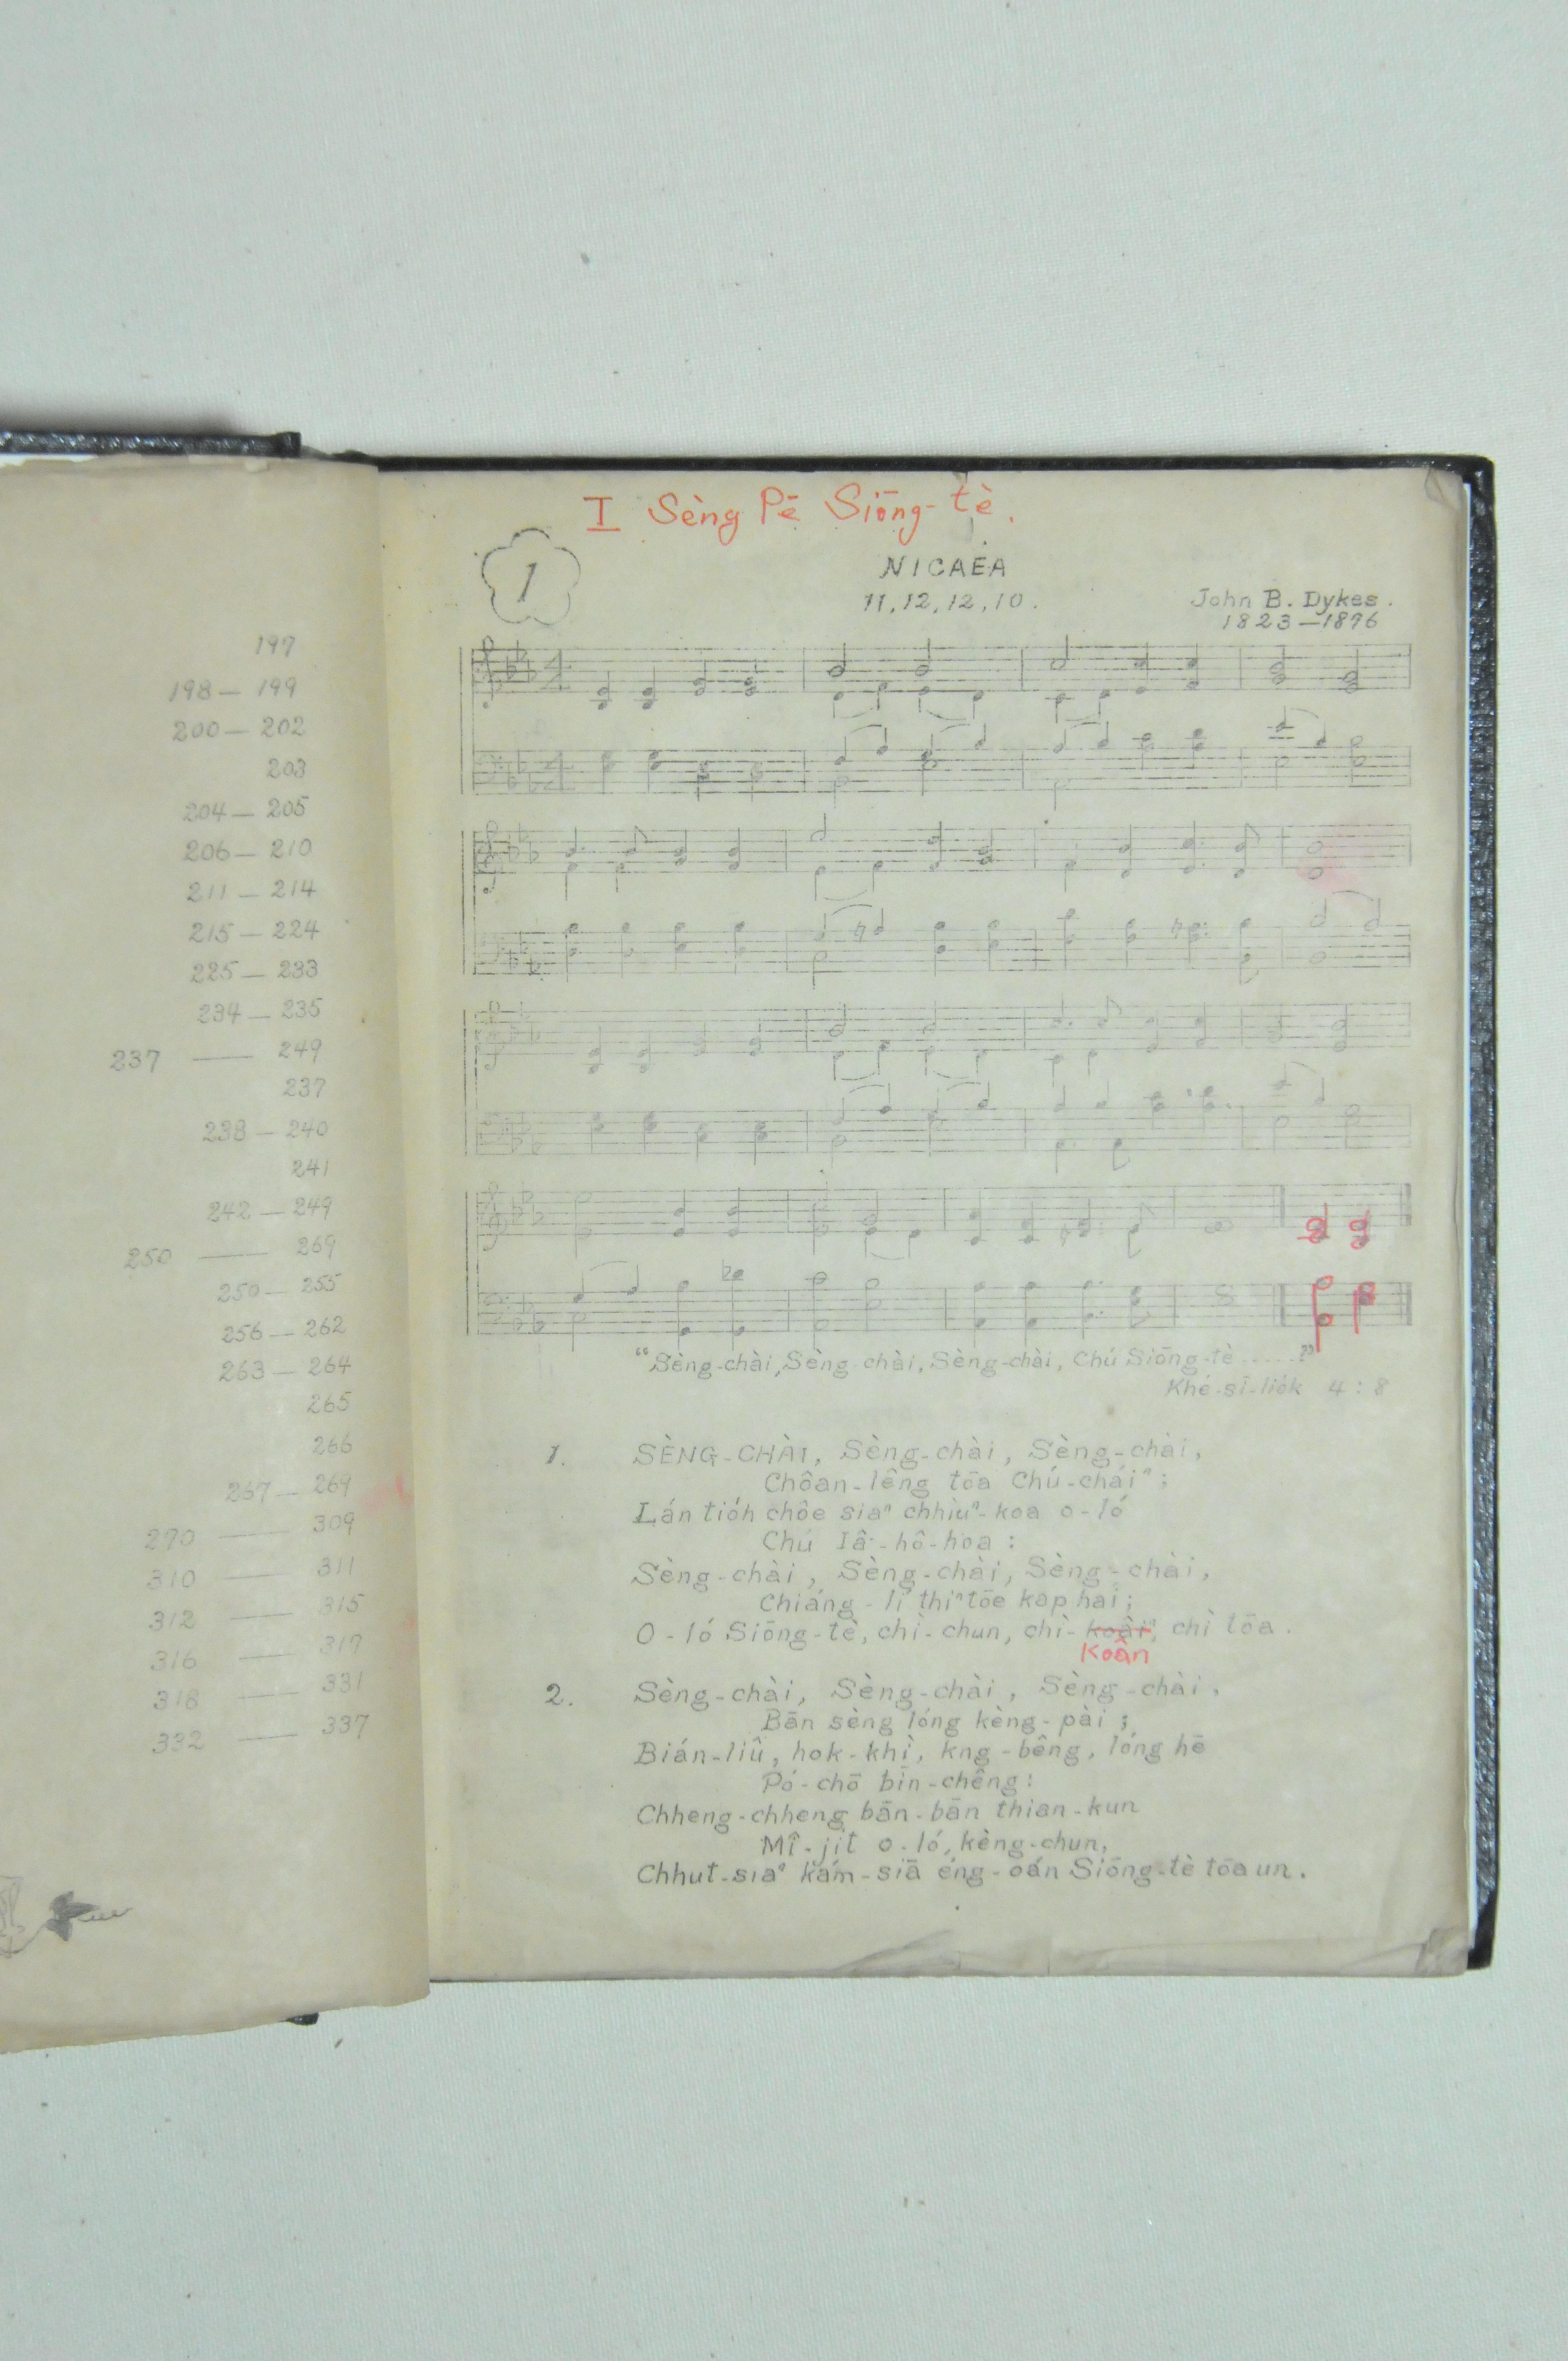 197
198 — 199
200 — 202
203
204 — 205
206 — 210
211 — 214
215 — 224
225 — 233
234 — 235
237 — 249
237
238 — 240
241
242 — 249
250 — 269
250 — 255
256 — 262
263 — 264
265
266
267 — 269
270 — 309
310 — 311
312 — 315
316 — 317
318 — 331
332 — 337
I Sèng Pē Siōng-tè.
1
NICAEA
11,12,12,10.
John B. Dykes.
1823—1876
“Sèng-chài, Sèng-chài, Sèng-chài, Chú Siōng-tè .....”
Khé-sī-lio̍k 4:8
1. SÈNG-CHÀI, Sèng-chài, Sèng-chài,
Chôan-lêng tōa Chú-cháiⁿ;
Lán tio̍h chôe siaⁿ chhiùⁿ-koa o-ló
Chú Iâ-hô-hoa:
Sèng-chài, Sèng-chài, Sèng-chài,
Chiáng-lí thiⁿ tōe kap hái;
O-ló Siōng-tè, chì-chun, chì-koâiⁿ, chì tōa.
Koân
2. Sèng-chài, Sèng-chài, Sèng-chài,
Bān sèng lóng kèng-pài;
Bián-liû, hok-khì, kng-bêng, lóng hē
Pó-chō bīn-chêng:
Chheng-chheng bān-bān thian-kun
Mî-ji̍t o-ló, kèng-chun,
Chhut-siaⁿ kám-siā éng-oán Siōng-tè tōa un.